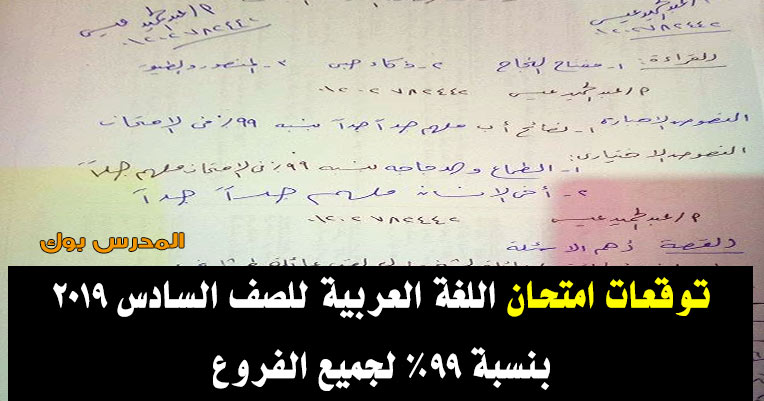 م/عبدالحميد عيسى
٠١٢٠٢٧٨٢٤٤٢
م/عبدالحميد عيسى
٠١٢٠٢٧٨٢٤٤٢
القراءة: ١- مفتاح النجاح ٢- ذكاء صبى ٣- المنصور والطيور
م/عبدالحميد عيسى ٠١٢٠٢٧٨٢٤٤٢
النصوص الإجبارية ١- نصائح أب ملهم جدآ جدآ بنسبه ٩٩٪ فى الامتحان
النصوص الاختيارى:
١- الطماع والدجاجه بنسبه ٩٩٪ فى الامتحان ملهم جدآ
٢- أخى الإنسان ملهم جدآ جدآ
م/عبدالحميد عيسى ٠١٢٠٢٧٨٢٤٤٢
القصة أهم الاسئلة
المدرس بوك
توقعات امتحان اللغة العربية للصف السادس ٢٠١٩
بنسبة ٩٩٪ لجميع الفروع